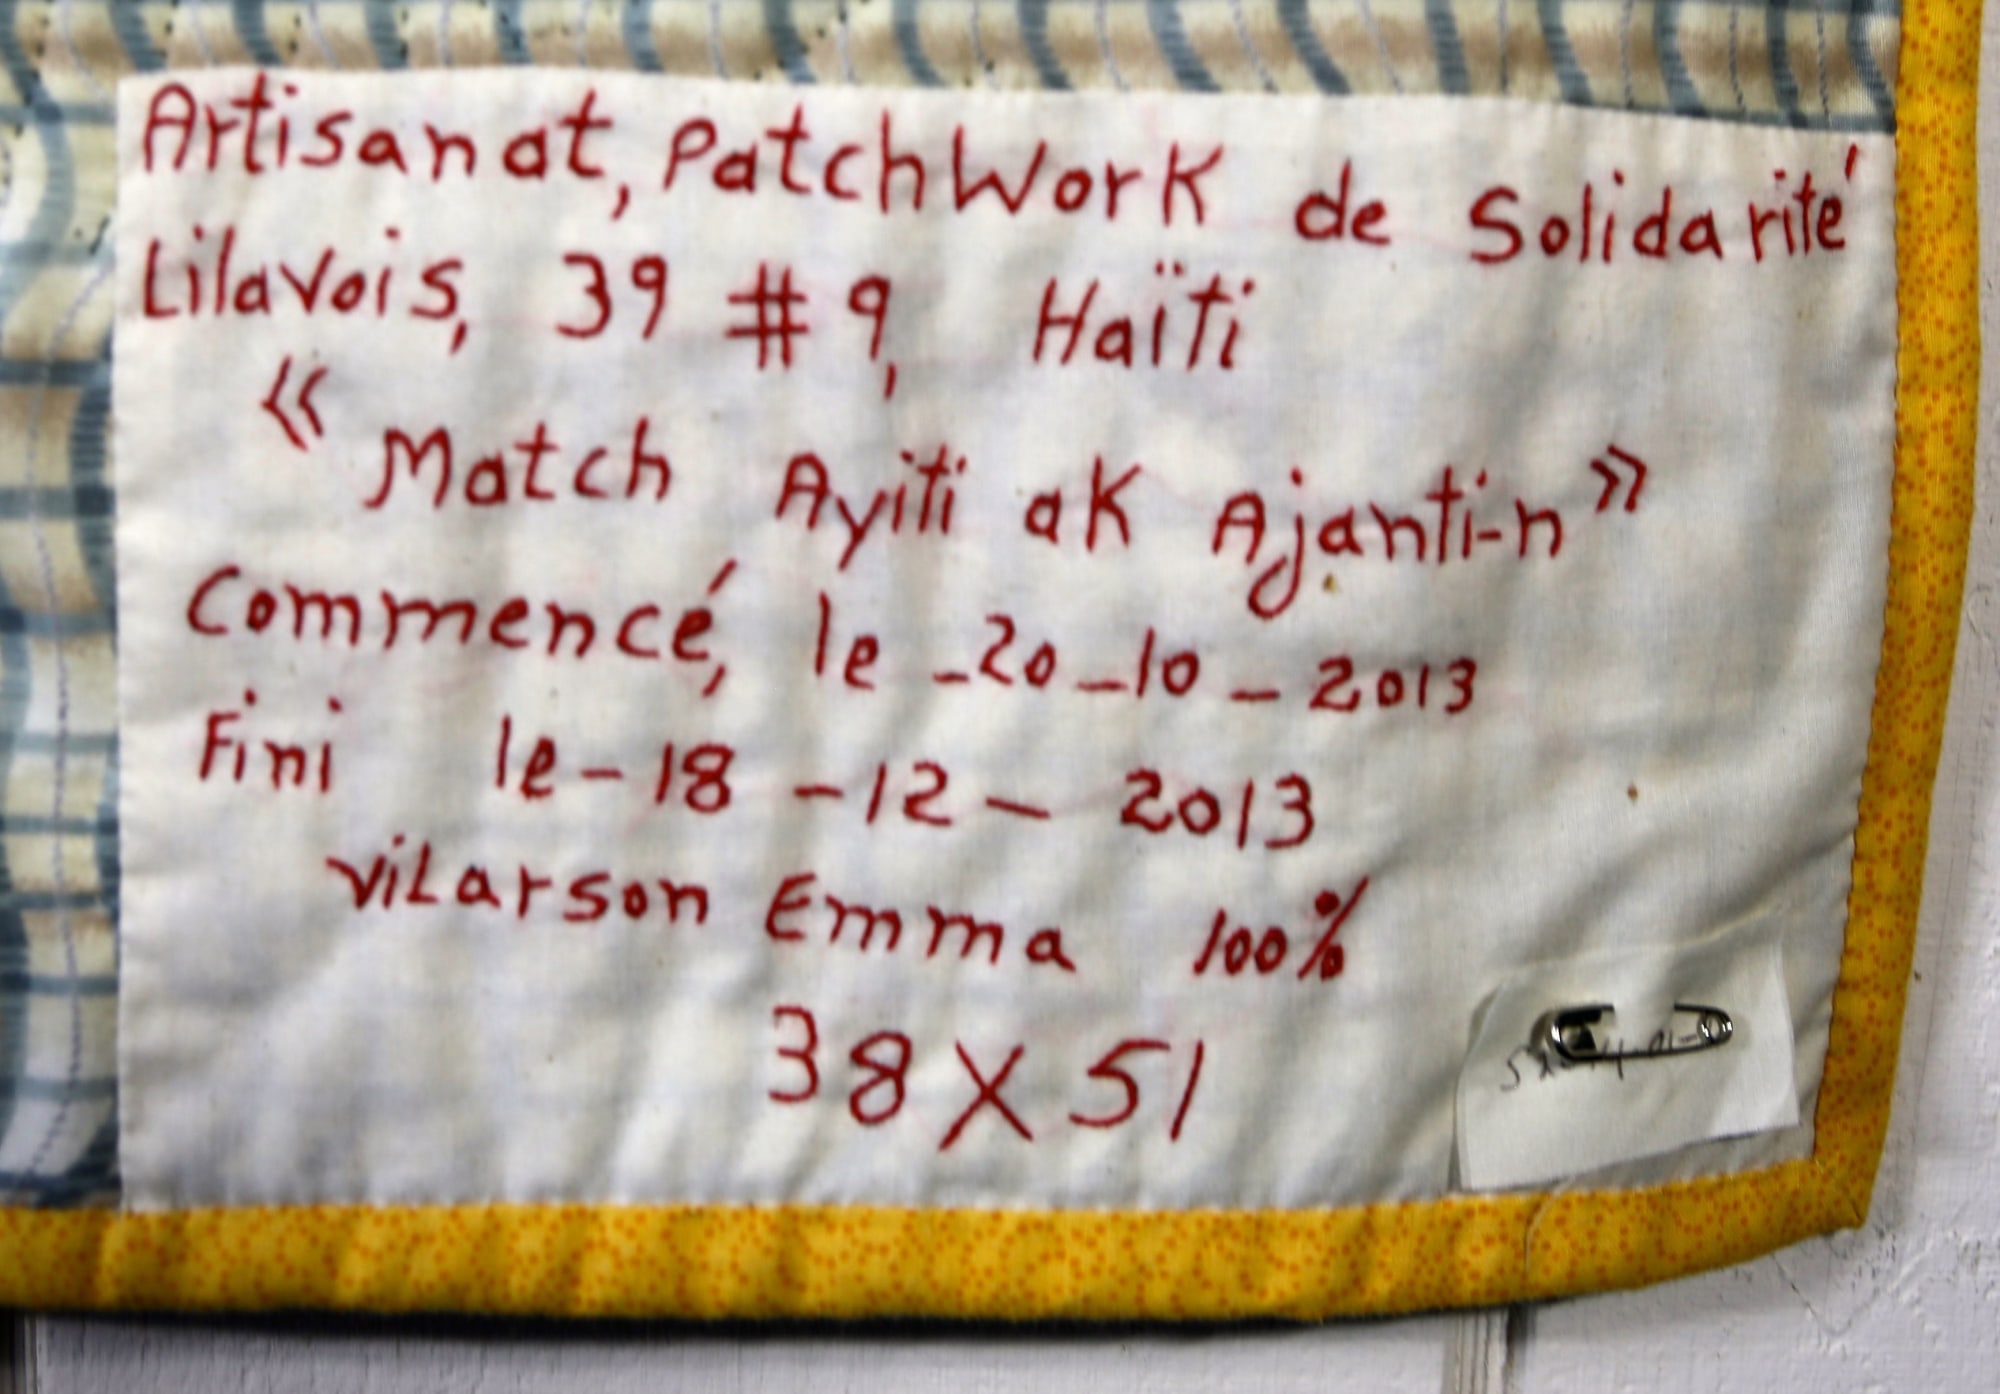 Artisanat, PatchWork de Solidarité
Lilavois, 39 # 9, Haïti
« Match Ayiti ak Ajanti-n »
Commencé, le -20-10-2013
Fini le-18-12-2013
viLarson Emma 100%
38X51